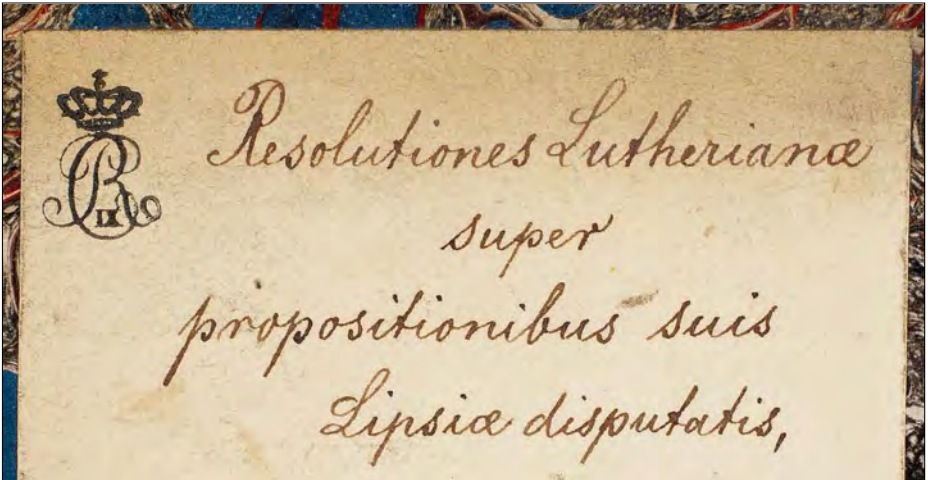 Resolutiones Lutherianæ
super
propositionibus suis
Lipsiæ disputatis,
IX